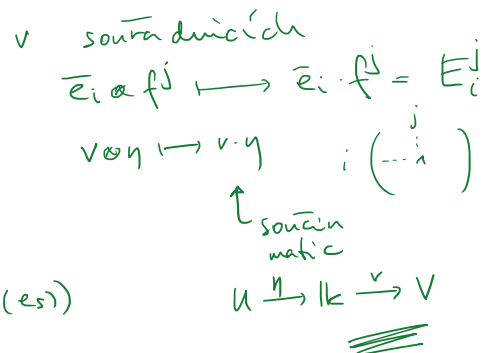 v souřadnicích
e̅ᵢ ⊗ fʲ ⟼ e̅ᵢ · fʲ = Eᵢʲ
v ⊗ η ⟼ v · η
j
i ( ---- 1 )
součin
matic
(es)) U →^η 𝕜 →^v V